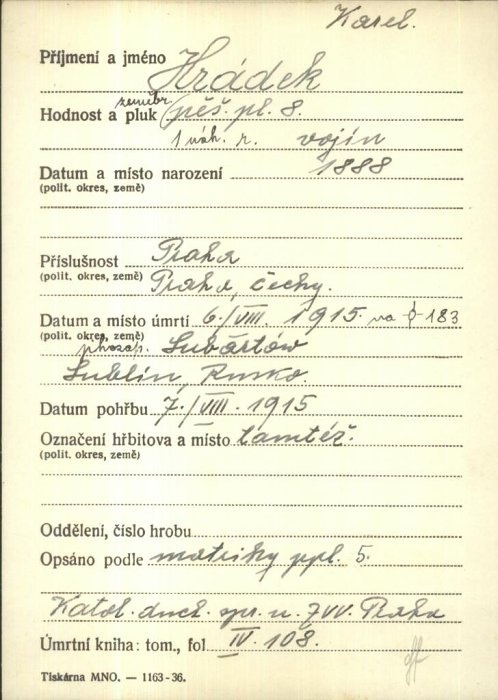 Karel.
Příjmení a jméno Hrádek
Hodnost a pluk zeměbr. pěš. pl. 8.
1 náh. r. vojín
Datum a místo narození 1888
(polit. okres, země)
Příslušnost Praha
(polit. okres, země) Praha, Čechy.
Datum a místo úmrtí 6./VIII. 1915. na 183
(polit. okres, země) Lubartów
Lublin, Rusko.
Datum pohřbu 7./VIII. 1915
Označení hřbitova a místo tamtéž.
(polit. okres, země)
Oddělení, číslo hrobu
Opsáno podle matriky ppl. 5.
Katol. duch. spr. u ZVV. Praha
Úmrtní kniha: tom., fol IV. 108.
Tiskárna MNO. — 1163-36.